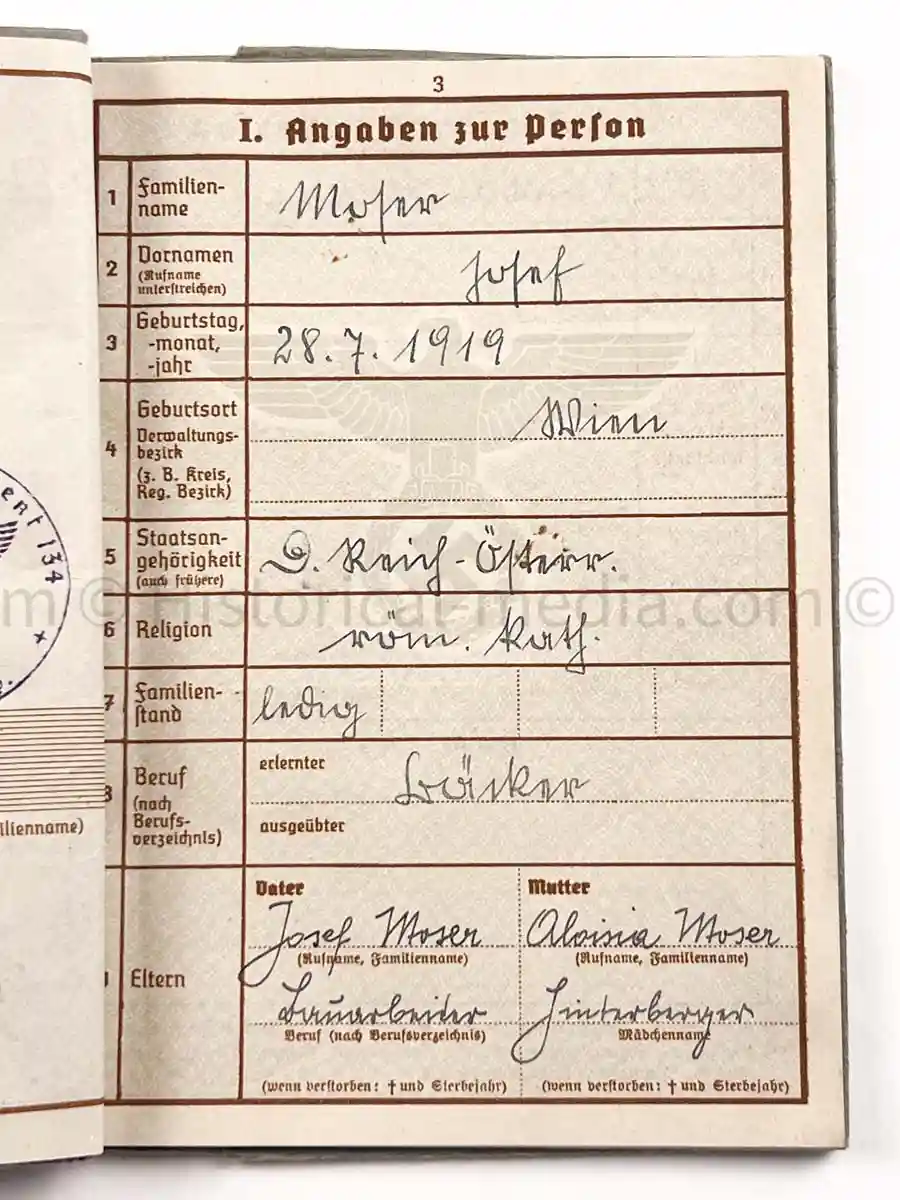 3
I. Angaben zur Person
1 Familien-
name
Moser
2 Vornamen
(Rufname
unterstreichen)
Josef
3 Geburtstag,
-monat,
-jahr
28. 7. 1919
4 Geburtsort
Verwaltungs-
bezirk
(z. B. Kreis,
Reg. Bezirk)
Wien
5 Staatsan-
gehörigkeit
(auch frühere)
D. Reich - Österr.
6 Religion
röm. Kath.
7 Familien-
stand
ledig
8 Beruf
(nach
Berufs-
verzeichnis)
erlernter
Bäcker
ausgeübter
Eltern
Vater
Josef Moser
(Rufname, Familienname)
Bauarbeiter
Beruf (nach Berufsverzeichnis)
(wenn verstorben: † und Sterbejahr)
Mutter
Aloisia Moser
(Rufname, Familienname)
Hinterberger
Mädchenname
(wenn verstorben: † und Sterbejahr)
ent 134
ilienname)
m © Historical-media.com ©